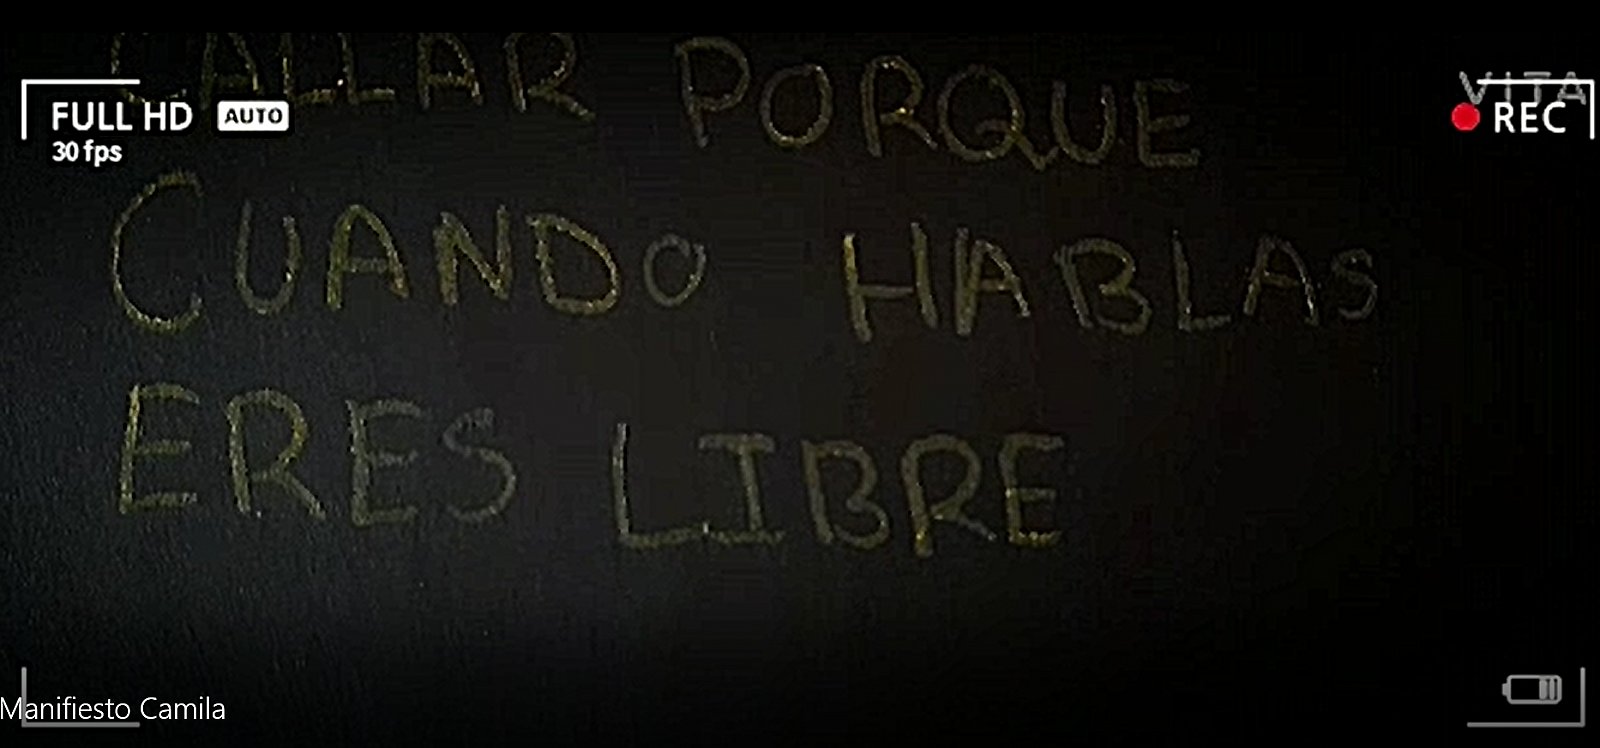 CALLAR PORQUE
VITA
FULL HD AUTO
REC
30 fps
CUANDO HABLAS
ERES LIBRE
Manifiesto Camila